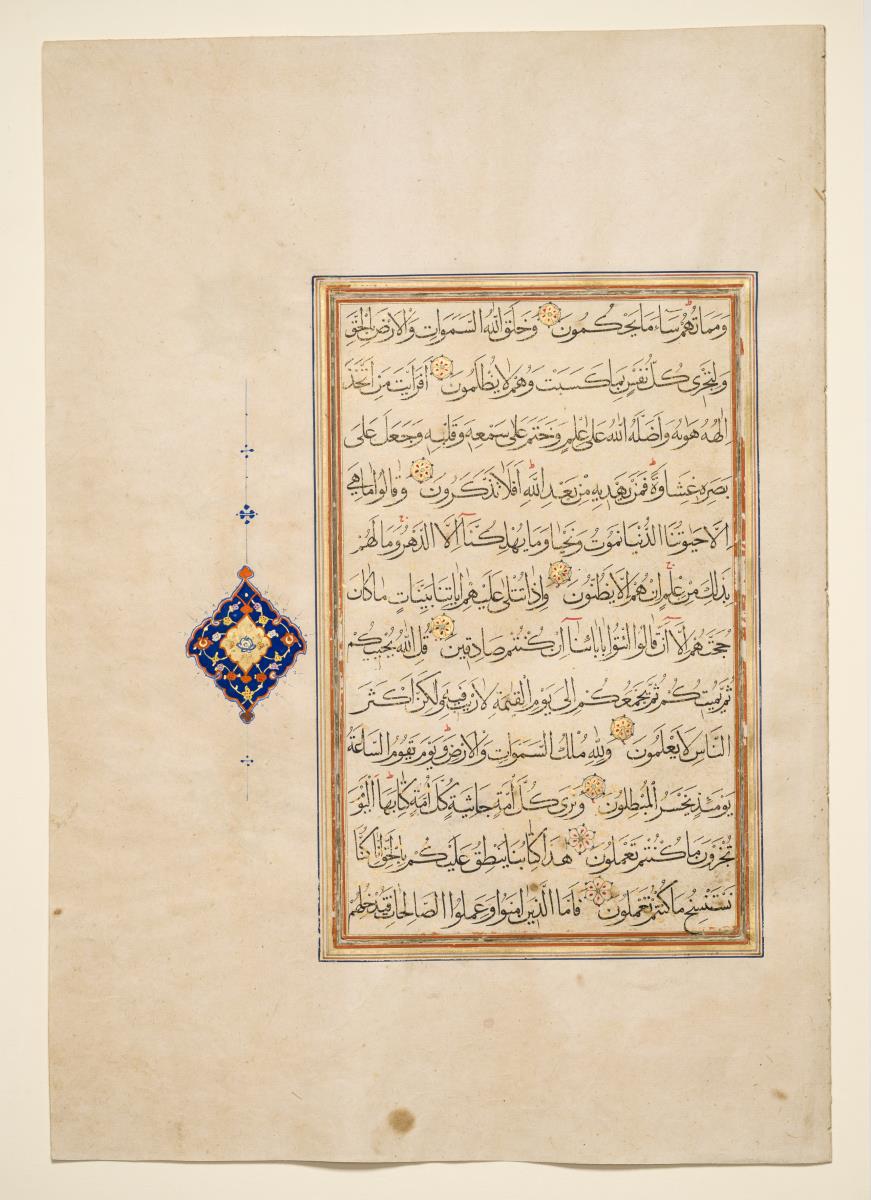 وَمَمَاتُهُمْ سَآءَ مَا يَحْكُمُونَ وَخَلَقَ اللّٰهُ السَّمٰوَاتِ وَالْاَرْضَ بِالْحَقِّ
وَلِتُجْزٰى كُلُّ نَفْسٍ بِمَا كَسَبَتْ وَهُمْ لَا يُظْلَمُونَ اَفَرَاَيْتَ مَنِ اتَّخَذَ
اِلٰهَهُ هَوٰيهُ وَاَضَلَّهُ اللّٰهُ عَلٰى عِلْمٍ وَخَتَمَ عَلٰى سَمْعِهِ وَقَلْبِهِ وَجَعَلَ عَلٰى
بَصَرِهِ غِشَاوَةً فَمَنْ يَهْدِيهِ مِنْ بَعْدِ اللّٰهِ اَفَلَا تَذَكَّرُونَ وَقَالُوا مَا هِيَ
اِلَّا حَيٰوتُنَا الدُّنْيَا نَمُوتُ وَنَحْيَا وَمَا يُهْلِكُنَآ اِلَّا الدَّهْرُ وَمَا لَهُمْ
بِذٰلِكَ مِنْ عِلْمٍ اِنْ هُمْ اِلَّا يَظُنُّونَ وَاِذَا تُتْلٰى عَلَيْهِمْ اٰيَاتُنَا بَيِّنَاتٍ مَا كَانَ
حُجَّتَهُمْ اِلَّآ اَنْ قَالُوا ائْتُوا بِاٰبَآئِنَآ اِنْ كُنْتُمْ صَادِقِينَ قُلِ اللّٰهُ يُحْيِيكُمْ
ثُمَّ يُمِيتُكُمْ ثُمَّ يَجْمَعُكُمْ اِلٰى يَوْمِ الْقِيٰمَةِ لَا رَيْبَ فِيهِ وَلٰكِنَّ اَكْثَرَ
النَّاسِ لَا يَعْلَمُونَ وَلِلّٰهِ مُلْكُ السَّمٰوَاتِ وَالْاَرْضِ وَيَوْمَ تَقُومُ السَّاعَةُ
يَوْمَئِذٍ يَخْسَرُ الْمُبْطِلُونَ وَتَرٰى كُلَّ اُمَّةٍ جَاثِيَةً كُلُّ اُمَّةٍ تُدْعٰى اِلٰى كِتَابِهَا اَلْيَوْمَ
تُجْزَوْنَ مَا كُنْتُمْ تَعْمَلُونَ هٰذَا كِتَابُنَا يَنْطِقُ عَلَيْكُمْ بِالْحَقِّ اِنَّا كُنَّا
نَسْتَنْسِخُ مَا كُنْتُمْ تَعْمَلُونَ فَاَمَّا الَّذِينَ اٰمَنُوا وَعَمِلُوا الصَّالِحَاتِ فَيُدْخِلُهُمْ